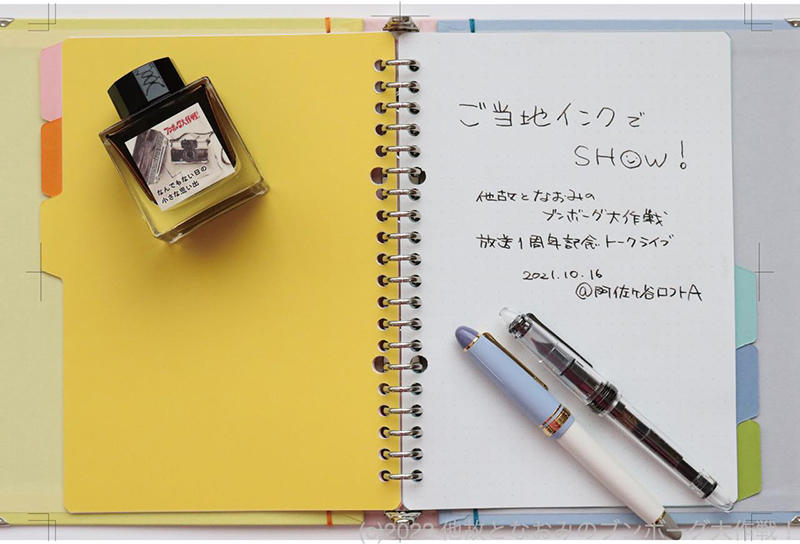 ブンボーグ大作戦!
なんでもない日の
小さな思い出
ご当地インクで
SHOW!
他故となおみの
ブンボーグ大作戦
放送1周年記念トークライブ
2021.10.16
@阿佐ヶ谷ロフトA
(C)2022 他故となおみのブンボーグ大作戦!